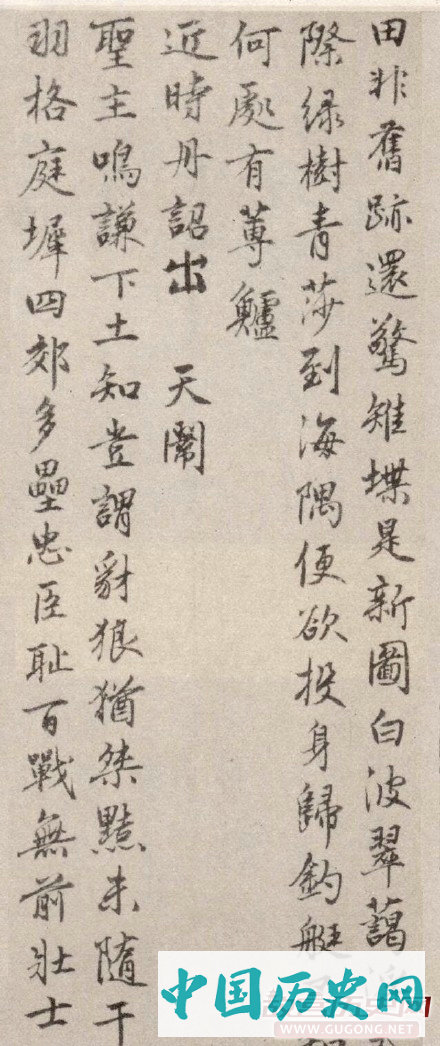 田非舊跡還驚雉堞是新圖白波翠藹
際綠樹青莎到海隅便欲投身歸釣艇
何處有蓴鱸
近時丹詔出 天闈
聖主鳴謙下土知豈謂豺狼猶桀黠未隨干
羽格庭墀四郊多壘忠臣恥百戰無前壯士
中国历史网
WWW.GUGONG.NET